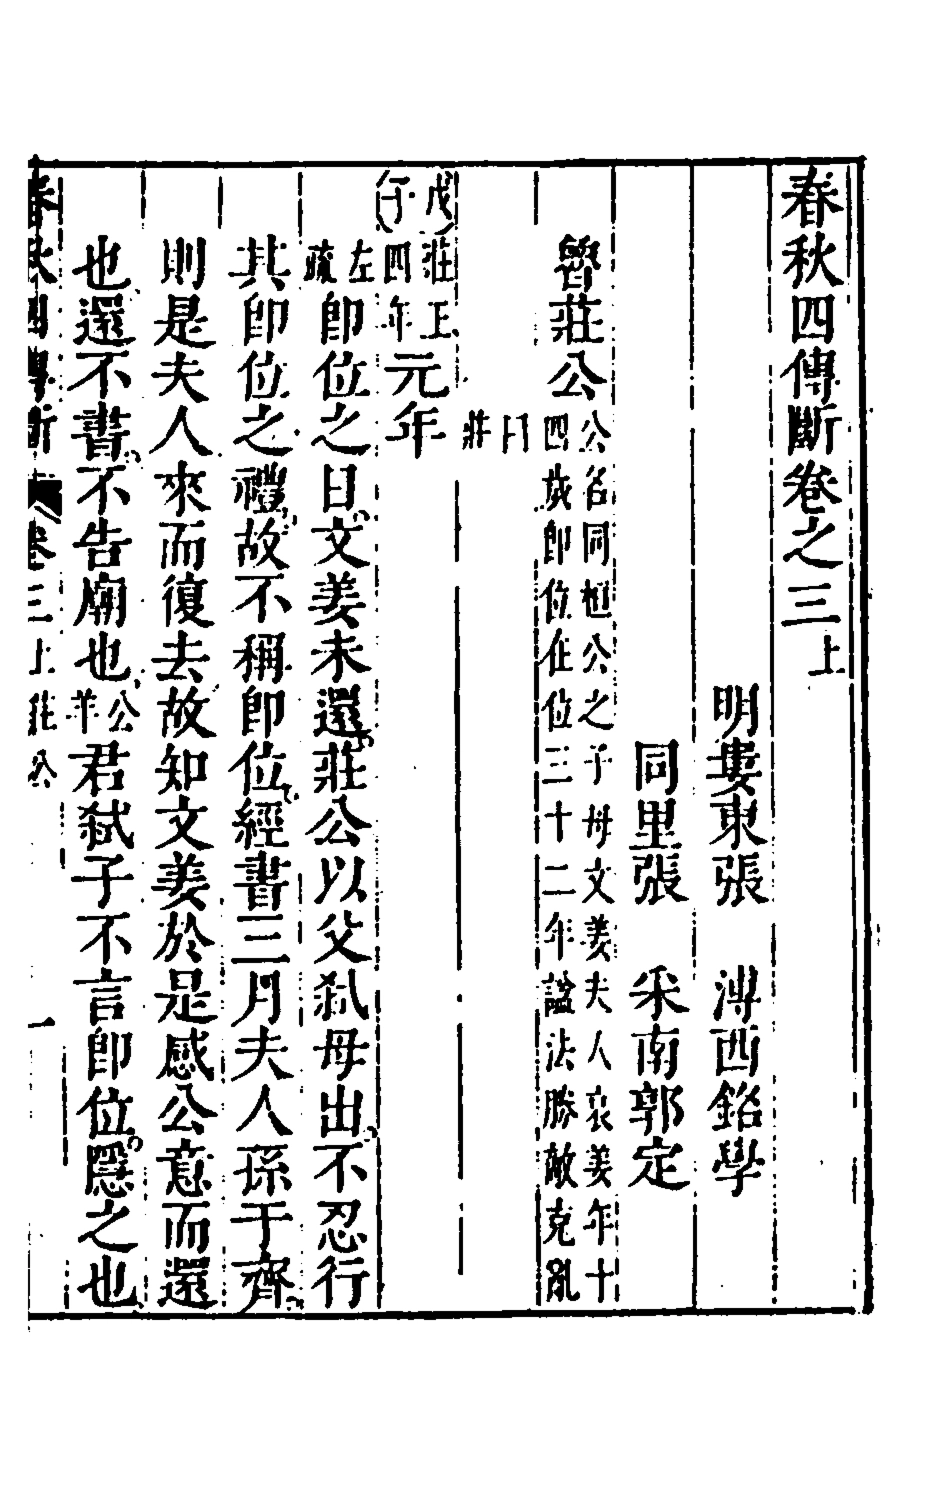 春秋四傳斷卷之三上
明婁東張　溥西銘學
同里張　采南郭定
魯莊公公名同桓公之子母文姜夫人哀姜年十
四歲即位在位三十二年諡法勝敵克亂
曰莊
戊午莊王四年元年
左疏即位之日文姜未還莊公以父弒母出不忍行
其即位之禮故不稱即位經書三月夫人孫于齊
則是夫人來而復去故知文姜於是感公意而還
也還不書不告廟也公羊君弒子不言即位隱之也
春秋四傳斷　卷三上莊公　一